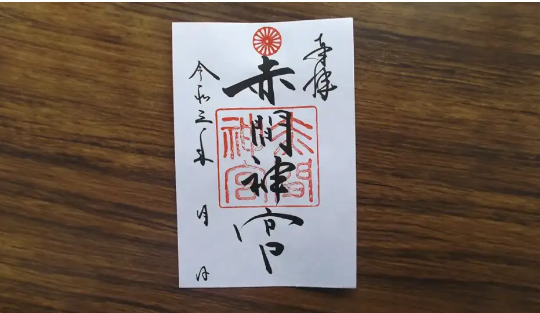 奉拝
赤間神宮
赤間神宮
令和三年 月 日